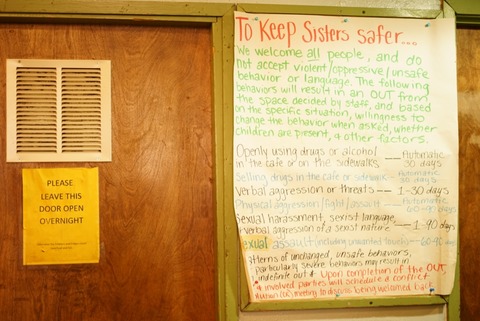 To Keep Sisters safer...
We welcome all people, and do
not accept violent/oppressive/unsafe
behavior or language. The following
behaviors will result in an OUT from
the space decided by staff, and based
on the specific situation, willingness to
change the behavior when asked, whether
children are present, & other factors.
Openly using drugs or alcohol
in the cafe or on the sidewalks — Automatic 30 days
Selling drugs in the cafe or sidewalk — Automatic 30 days
Verbal aggression or threats — 1-30 days
Physical aggression/fight/assault — Automatic
Sexual harassment, sexist language,
verbal aggression of a sexist nature — 1-90 days
Sexual assault (including unwanted touch)
Patterns of unchanged, unsafe behaviors,
particularly severe behaviors may result in
indefinite out. Upon completion of the OUT,
involved parties will schedule a conflict
meeting to discuss being welcomed back.
PLEASE
LEAVE THIS
DOOR OPEN
OVERNIGHT